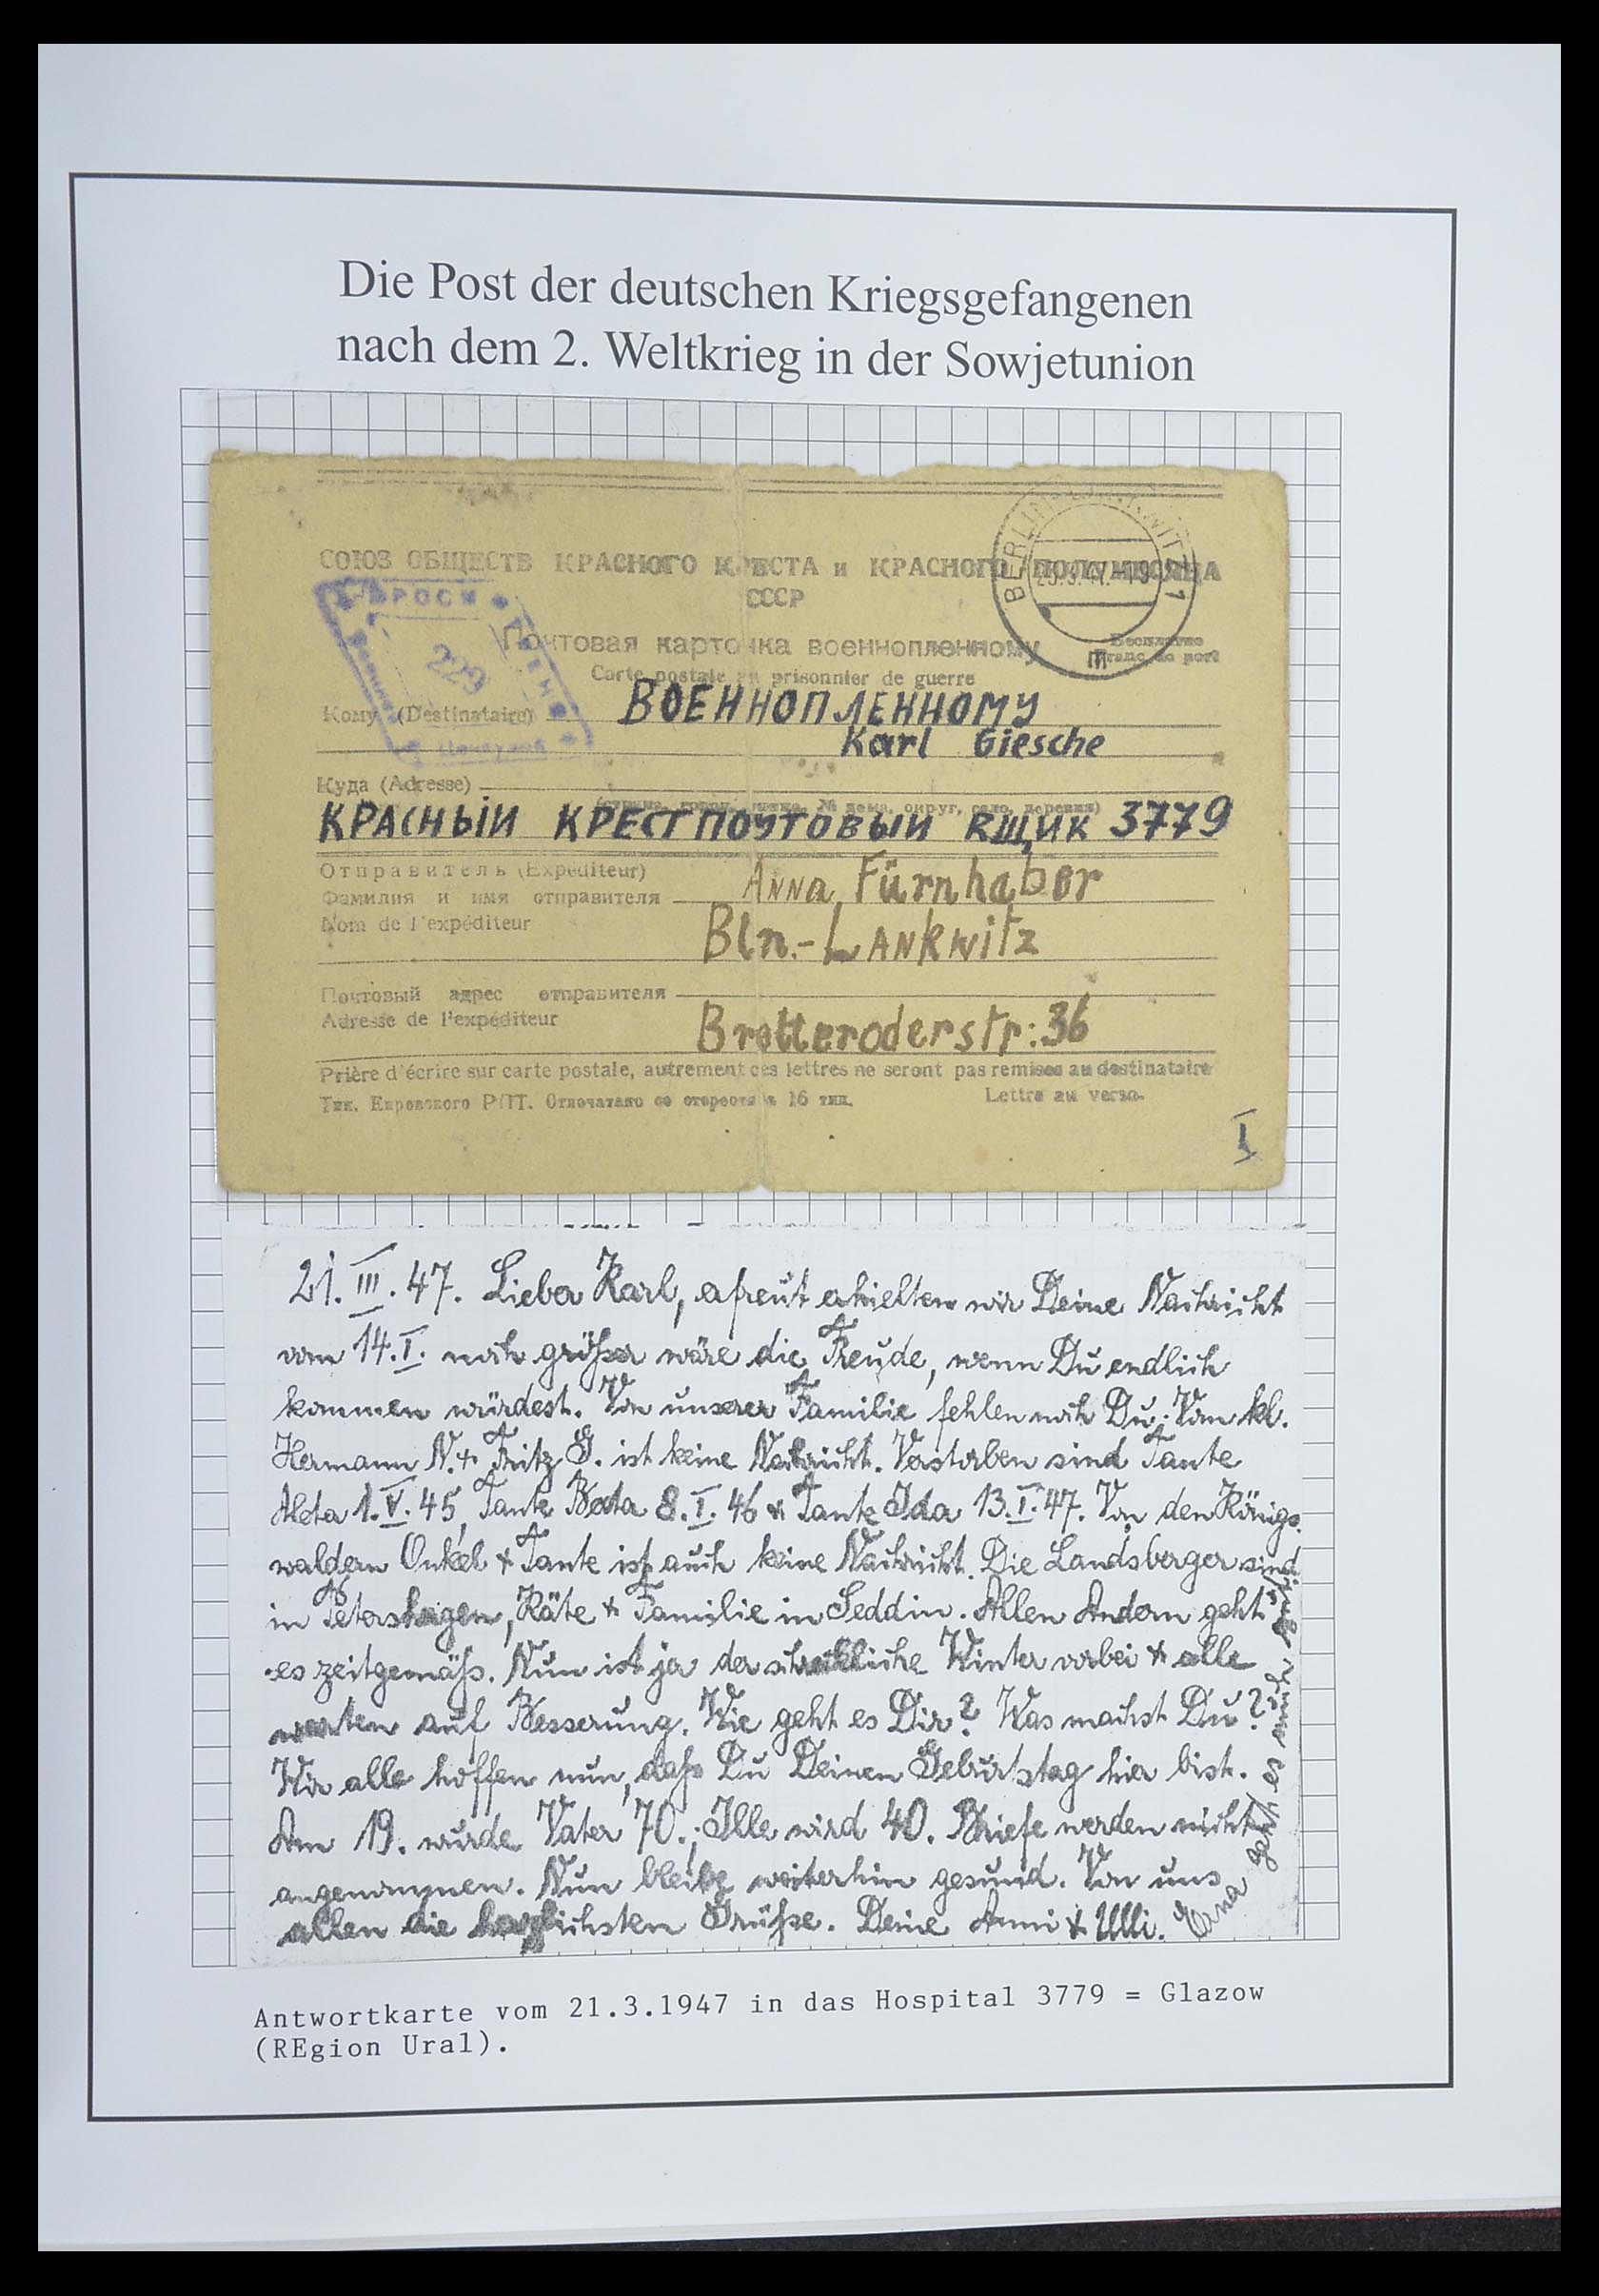 Die Post der deutschen Kriegsgefangenen
nach dem 2. Weltkrieg in der Sowjetunion
СОЮЗ ОБЩЕСТВ КРАСНОГО КРЕСТА и КРАСНОГО ПОЛУМЕСЯЦА
СССР
BERLIN 1
25.3.47.-19
Почтовая карточка военнопленному
Бесплатно
Franc de port
Carte postale au prisonnier de guerre
229
Кому (Destinataire) ВОЕННОПЛЕННОМУ
Karl Giesche
Куда (Adresse)
(страна, город, улица, № дома, округ, село, деревня)
КРАСНЫЙ КРЕСТ ПОЧТОВЫЙ ЯЩИК 3779
Отправитель (Expéditeur)
Фамилия и имя отправителя Anna Fürnhaber
Nom de l'expéditeur
Bln.-Lankwitz
Почтовый адрес отправителя
Adresse de l'expéditeur
Brotteroderstr: 36
Prière d'écrire sur carte postale, autrement ces lettres ne seront pas remises au destinataire
Тип. Кировского РПТ. Отпечатано со стереотипа 16 тип. Lettre au verso.
I
21. III. 47. Lieber Karl, erfreut erhielten wir Deine Nachricht
vom 14. I. noch größer wäre die Freude, wenn Du endlich
kommen würdest. Von unserer Familie fehlen noch Du; Vom kl.
Hermann N. + Fritz G. ist keine Nachricht. Verstorben sind Tante
Meta 1. V. 45, Tante Berta 8. I. 46 + Tante Ida 13. I. 47. Von den Königs-
waldern Onkel + Tante ist auch keine Nachricht. Die Landsberger sind
in Petershagen, Käte + Familie in Seddin. Allen Andern geht
es zeitgemäß. Nun ist ja der schreckliche Winter vorbei + alle
warten auf Besserung. Wie geht es Dir? Was machst Du?
Wir alle hoffen nun, daß Du Deinen Geburtstag hier bist.
Am 19. wurde Vater 70.; Ille wird 40. Briefe werden nicht
angenommen. Nun bleibe weiterhin gesund. Von uns
allen die herzlichsten Grüße. Deine Anni + Ulli.
Erna geht es auch
Antwortkarte vom 21.3.1947 in das Hospital 3779 = Glazow
(REgion Ural).